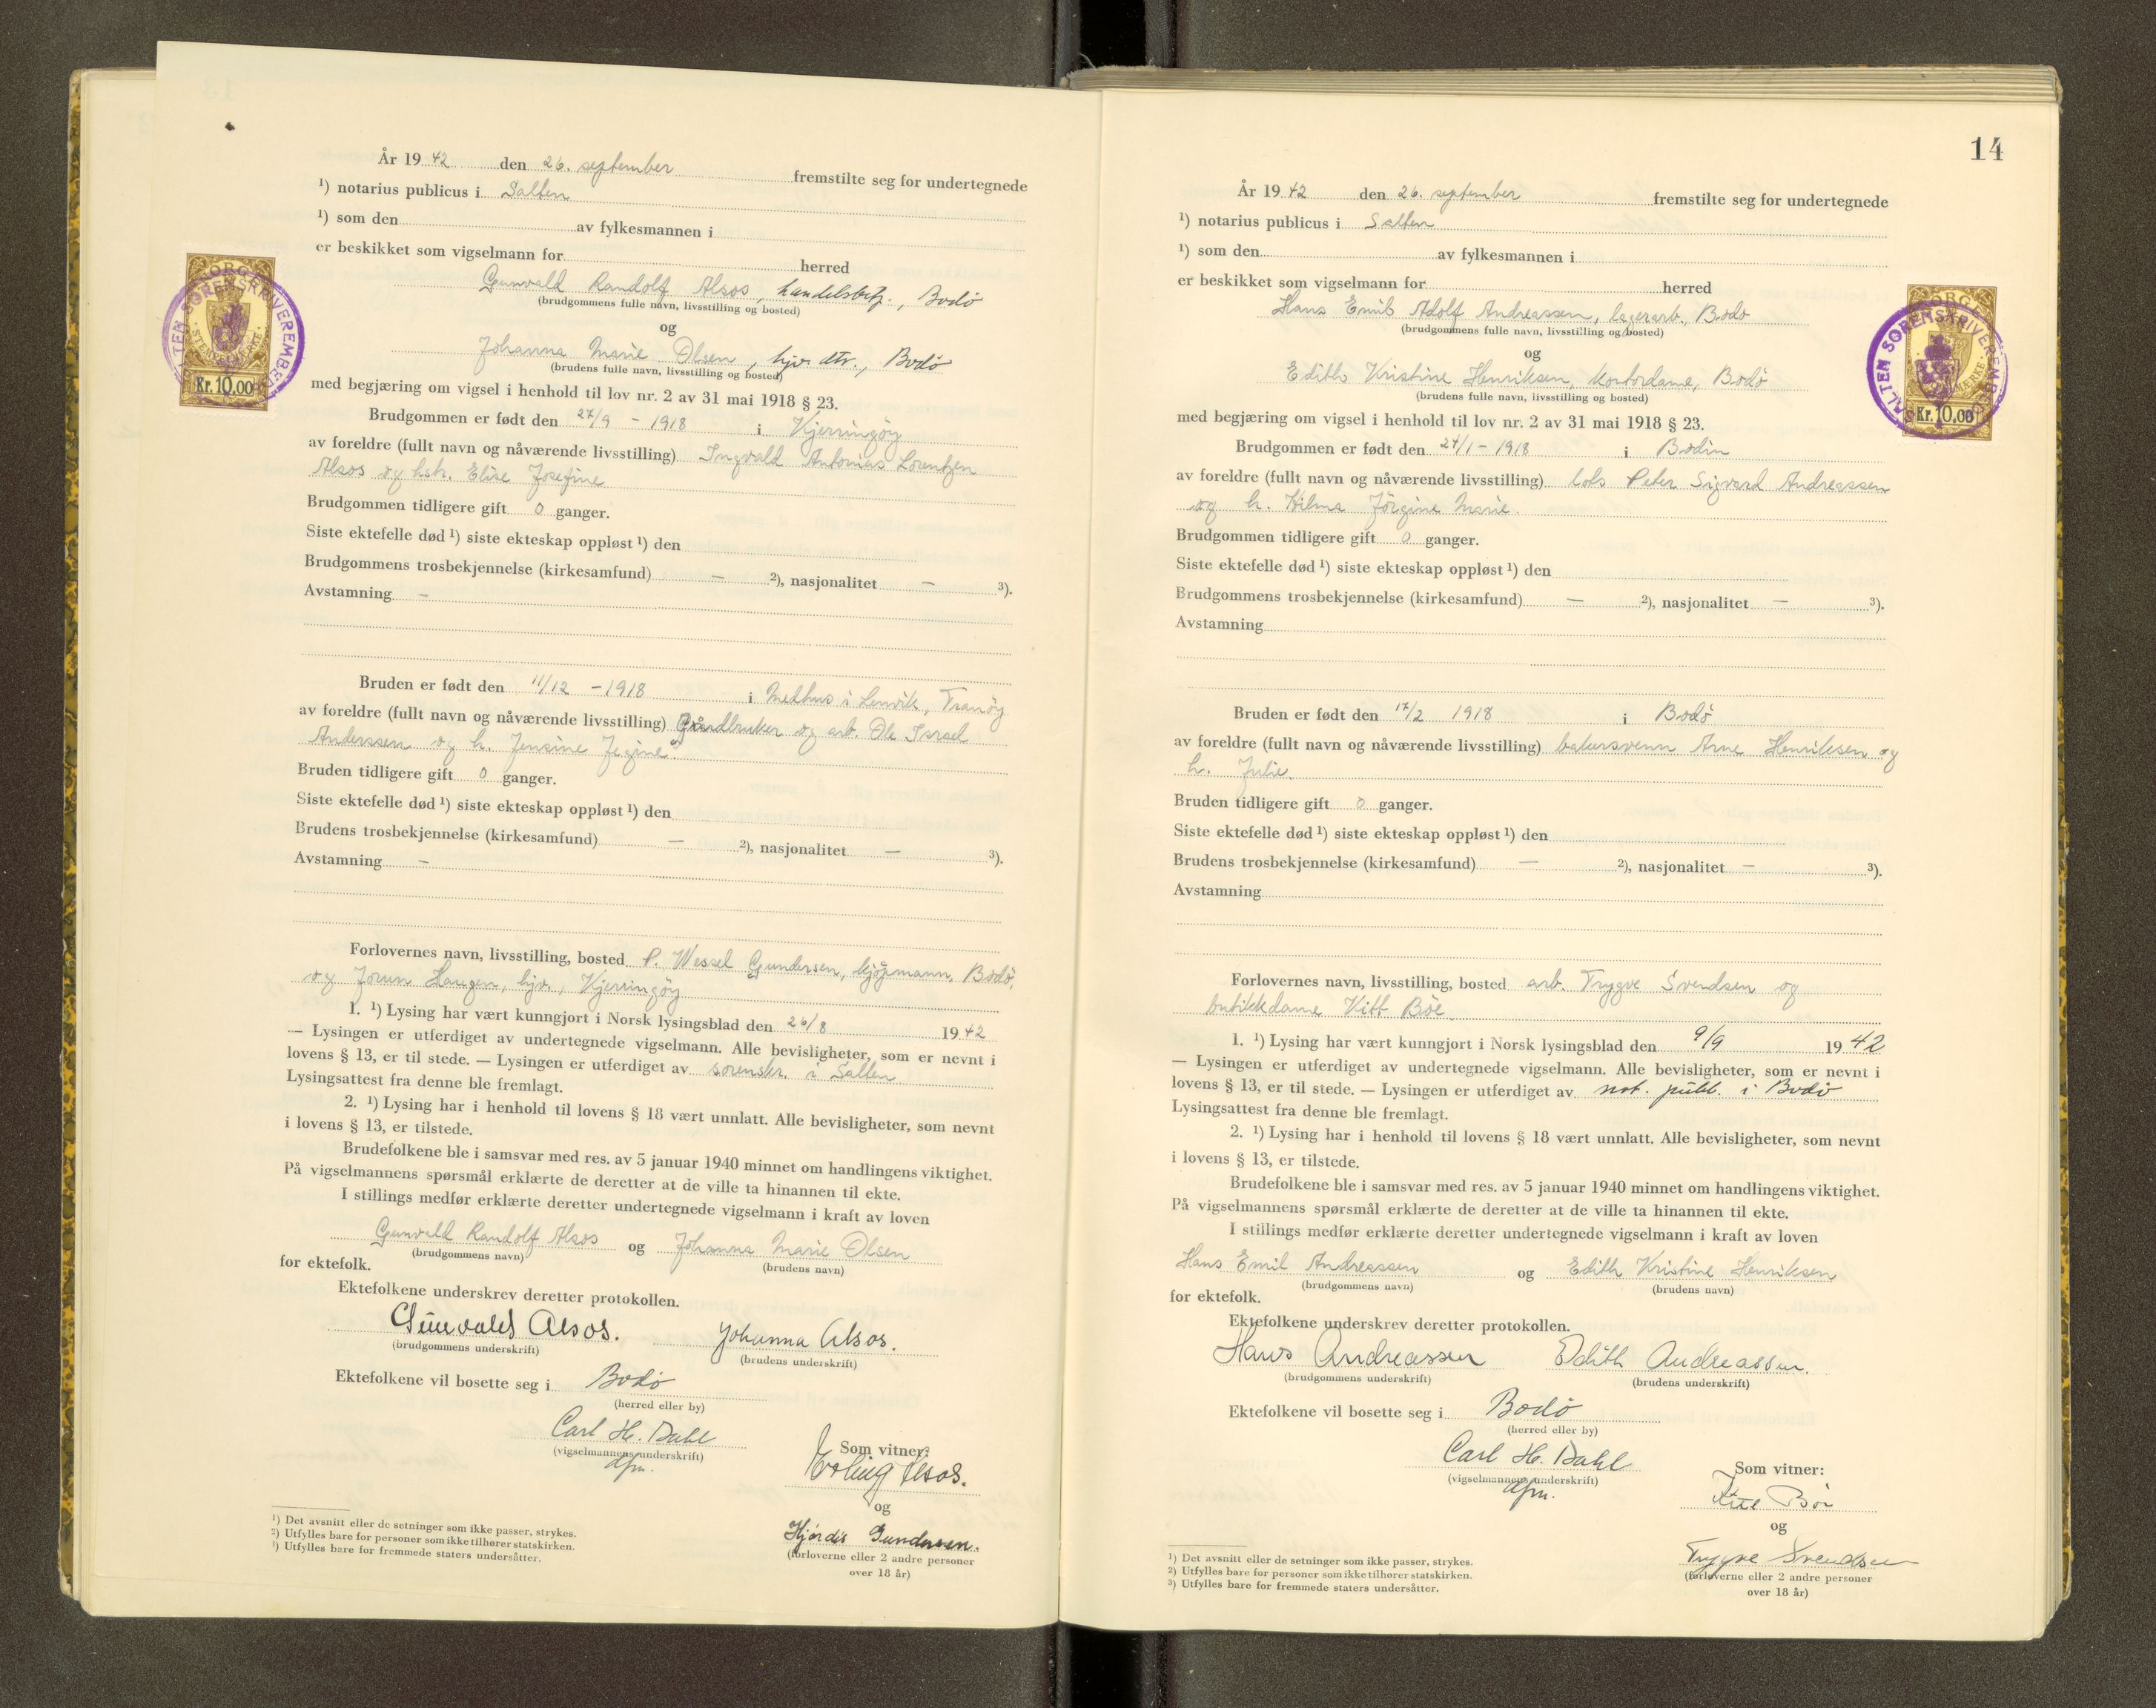 År 19 42 den 26. september fremstilte seg for undertegnede
¹) notarius publicus i Salten
¹) som den av fylkesmannen i
er beskikket som vigselmann for herred
Gunvald Randolf Alsos, handelsbetj., Bodø
(brudgommens fulle navn, livsstilling og bosted)
og
Johanna Marie Olsen, hjv. dtr., Bodø
(brudens fulle navn, livsstilling og bosted)
med begjæring om vigsel i henhold til lov nr. 2 av 31 mai 1918 § 23.
Brudgommen er født den 27/9 - 1918 i Kjerringøy
av foreldre (fullt navn og nåværende livsstilling) Ingvald Antonius Lorentzen
Alsos og hstr. Elise Josefine
Brudgommen tidligere gift 0 ganger.
Siste ektefelle død ¹) siste ekteskap oppløst ¹) den
Brudgommens trosbekjennelse (kirkesamfund) — ²), nasjonalitet — ³).
Avstamning —
Bruden er født den 11/12 - 1918 i Medhus i Lenvik, Tranøy
av foreldre (fullt navn og nåværende livsstilling) Gårdbruker og arb. Ole Israel
Anderssen og h. Jensine
Bruden tidligere gift 0 ganger.
Siste ektefelle død ¹) siste ekteskap oppløst ¹) den
Brudens trosbekjennelse (kirkesamfund) — ²), nasjonalitet — ³).
Avstamning —
Forlovernes navn, livsstilling, bosted P. Wessel Gundersen, kjøpmann, Bodø,
og Jorun Haugen, hjv., Kjerringøy
1. ¹) Lysing har vært kunngjort i Norsk lysingsblad den 26/8 19 42
— Lysingen er utferdiget av undertegnede vigselmann. Alle bevisligheter, som er nevnt i
lovens § 13, er til stede. — Lysingen er utferdiget av sorenskr. i Salten
Lysingsattest fra denne ble fremlagt.
2. ¹) Lysing har i henhold til lovens § 18 vært unnlatt. Alle bevisligheter, som nevnt
i lovens § 13, er tilstede.
Brudefolkene ble i samsvar med res. av 5 januar 1940 minnet om handlingens viktighet.
På vigselmannens spørsmål erklærte de deretter at de ville ta hinannen til ekte.
I stillings medfør erklærte deretter undertegnede vigselmann i kraft av loven
Gunvald Randolf Alsos og Johanna Marie Olsen
(brudgommens navn) (brudens navn)
for ektefolk.
Ektefolkene underskrev deretter protokollen.
Gunvald Alsos. Johanna Alsos.
(brudgommens underskrift) (brudens underskrift)
Ektefolkene vil bosette seg i Bodø
(herred eller by)
Carl H. Dahl
(vigselmannens underskrift)
dfm.
Som vitner:
Erling Alsos.
og
Hjørdis Gundersen.
(forloverne eller 2 andre personer
over 18 år)
¹) Det avsnitt eller de setninger som ikke passer, strykes.
²) Utfylles bare for personer som ikke tilhører statskirken.
³) Utfylles bare for fremmede staters undersåtter.
NORGE
STEMPELMERKE
Kr. 10.00
SALTEN SORENSKRIVEREMBED
14
År 19 42 den 26. september fremstilte seg for undertegnede
¹) notarius publicus i Salten
¹) som den av fylkesmannen i
er beskikket som vigselmann for herred
Hans Emil Adolf Andreassen, lagerarb., Bodø
(brudgommens fulle navn, livsstilling og bosted)
og
Edith Kristine Henriksen, kontordame, Bodø
(brudens fulle navn, livsstilling og bosted)
med begjæring om vigsel i henhold til lov nr. 2 av 31 mai 1918 § 23.
Brudgommen er født den 24/1 - 1918 i Bodin
av foreldre (fullt navn og nåværende livsstilling) los Peter Sigvard Andreassen
og h. Hilma Jørgine Marie.
Brudgommen tidligere gift 0 ganger.
Siste ektefelle død ¹) siste ekteskap oppløst ¹) den
Brudgommens trosbekjennelse (kirkesamfund) — ²), nasjonalitet — ³).
Avstamning
Bruden er født den 17/2 1918 i Bodø
av foreldre (fullt navn og nåværende livsstilling) bakersvenn Arne Henriksen og
h. Julie.
Bruden tidligere gift 0 ganger.
Siste ektefelle død ¹) siste ekteskap oppløst ¹) den
Brudens trosbekjennelse (kirkesamfund) — ²), nasjonalitet — ³).
Avstamning
Forlovernes navn, livsstilling, bosted arb. Trygve Svendsen og
butikkdame Kitt Bøe.
1. ¹) Lysing har vært kunngjort i Norsk lysingsblad den 9/9 19 42
— Lysingen er utferdiget av undertegnede vigselmann. Alle bevisligheter, som er nevnt i
lovens § 13, er til stede. — Lysingen er utferdiget av not. publ. i Bodø
Lysingsattest fra denne ble fremlagt.
2. ¹) Lysing har i henhold til lovens § 18 vært unnlatt. Alle bevisligheter, som nevnt
i lovens § 13, er tilstede.
Brudefolkene ble i samsvar med res. av 5 januar 1940 minnet om handlingens viktighet.
På vigselmannens spørsmål erklærte de deretter at de ville ta hinannen til ekte.
I stillings medfør erklærte deretter undertegnede vigselmann i kraft av loven
Hans Emil Andreassen og Edith Kristine Henriksen
(brudgommens navn) (brudens navn)
for ektefolk.
Ektefolkene underskrev deretter protokollen.
Hans Andreassen Edith Andreassen.
(brudgommens underskrift) (brudens underskrift)
Ektefolkene vil bosette seg i Bodø
(herred eller by)
Carl H. Dahl
(vigselmannens underskrift)
dfm.
Som vitner:
Bøe
og
Trygve Svendsen
(forloverne eller 2 andre personer
over 18 år)
¹) Det avsnitt eller de setninger som ikke passer, strykes.
²) Utfylles bare for personer som ikke tilhører statskirken.
³) Utfylles bare for fremmede staters undersåtter.
NORGE
STEMPELMERKE
Kr. 10.00
SALTEN SORENSKRIVEREMBED